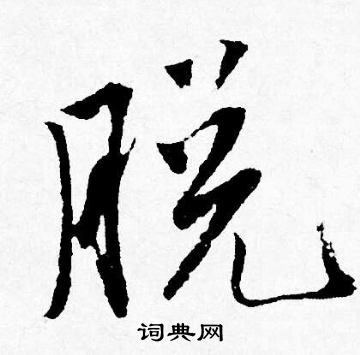 脱
词典网